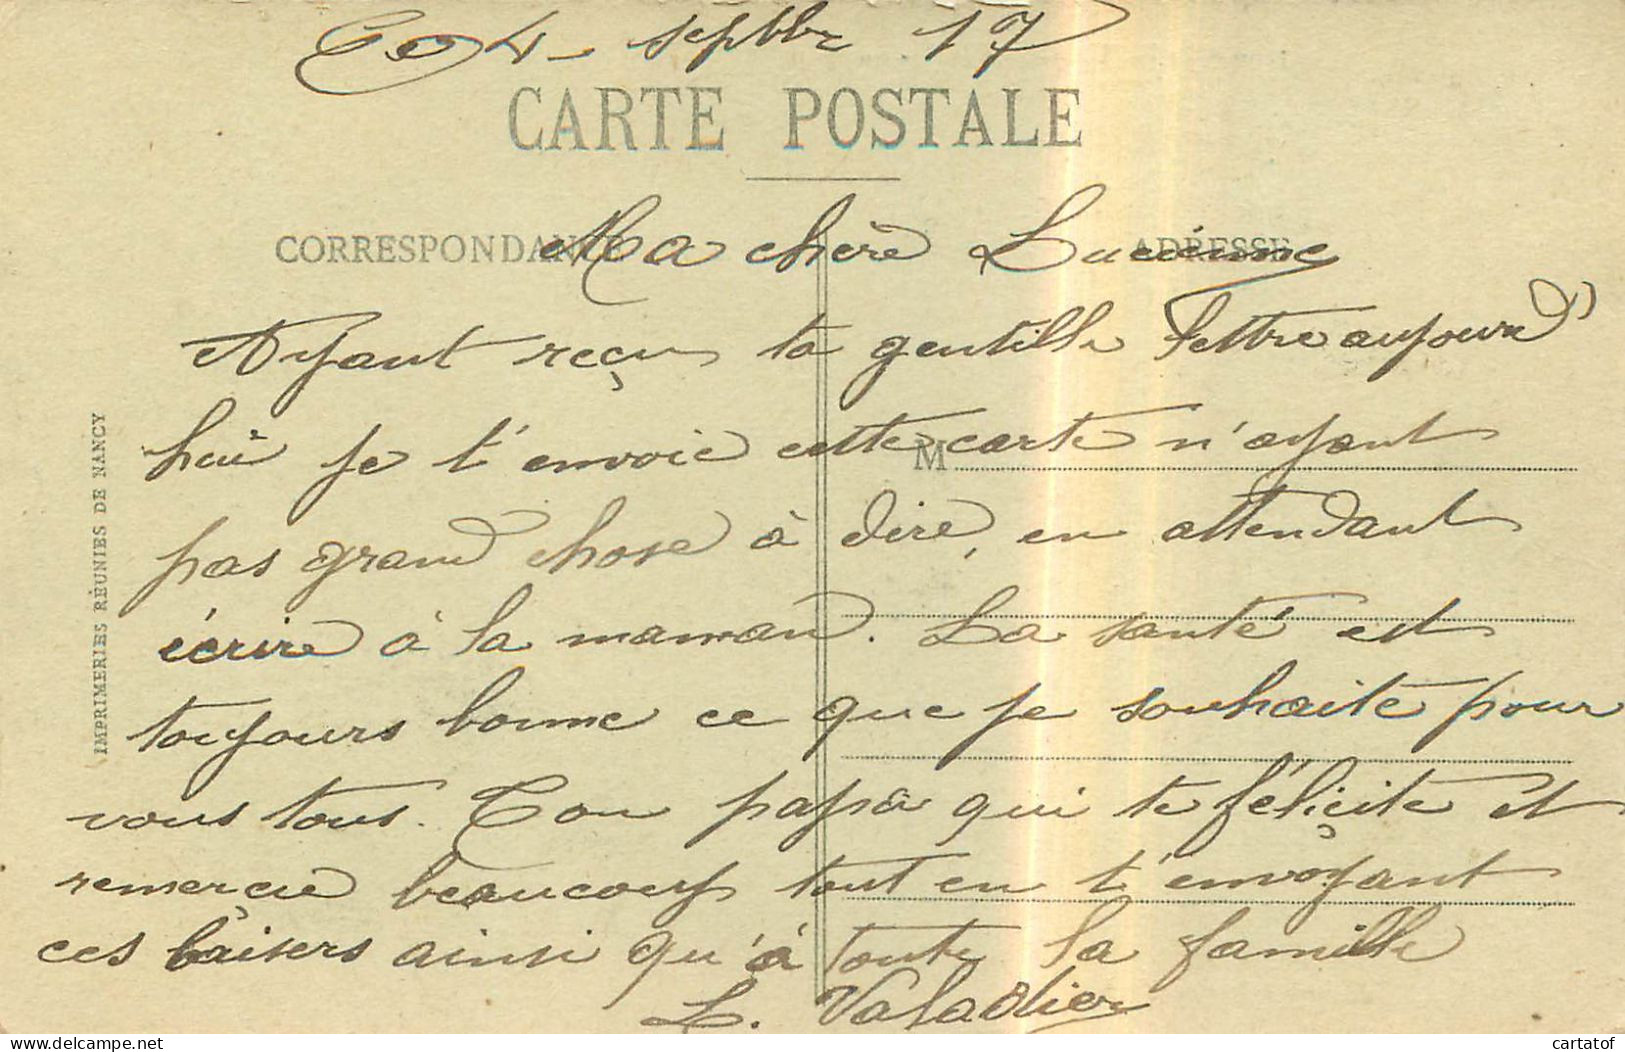 Ce 4 septbbre 17
CARTE POSTALE
CORRESPONDANCE
ADRESSE
Ma chère Lucienne
Ayant reçu ta gentille lettre aujourd'
hui je t'envoie cette carte n'ayant
M
pas grand chose à dire, en attendant
écrire à la maman. La santé est
toujours bonne ce que je souhaite pour
vous tous. Ton papa qui te féliçite et
remerçie beaucoup tout en t'envoyant
ces baisers ainsi qu'à toute la famille
L. Valadier
IMPRIMERIES RÉUNIES DE NANCY
cartatof
delcampe.net